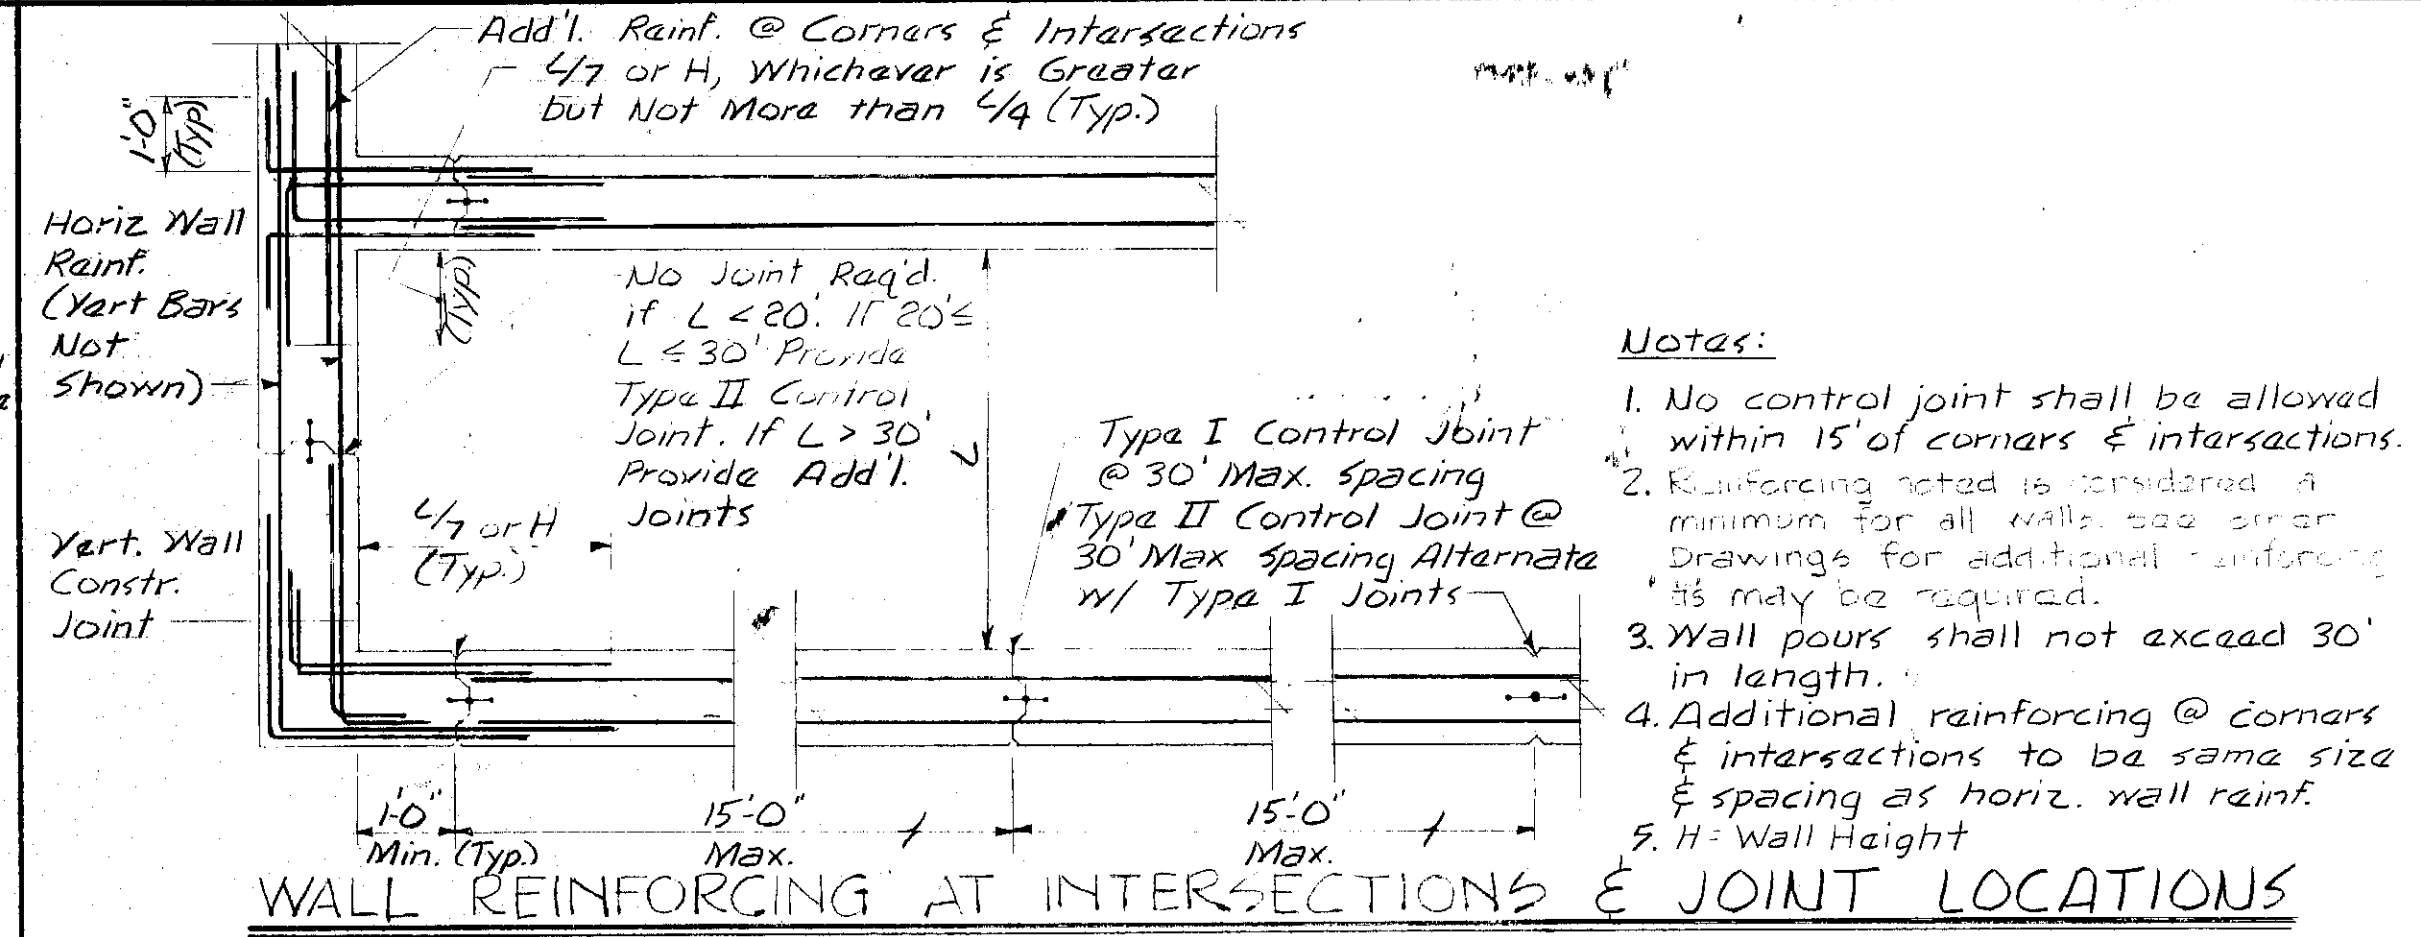 Add'l. Reinf. @ Corners & Intersections
L/7 or H, Whichever is Greater
but Not More than L/4 (Typ.)
1'-0"
(Typ)
Horiz Wall
Reinf.
(Vert Bars
Not
Shown)
(Typ.)
No Joint Req'd.
if L < 20'. If 20' ≤
L ≤ 30' Provide
Type II Control
Joint. If L > 30'
Provide Add'l.
Joints
L
L/7 or H
(Typ.)
Vert. Wall
Constr.
Joint
Type I Control Joint
@ 30' Max. Spacing
Type II Control Joint @
30' Max Spacing Alternate
w/ Type I Joints
1'-0"
Min. (Typ.)
15'-0"
Max.
15'-0"
Max.
Notes:
1. No control joint shall be allowed
within 15' of corners & intersections.
2. Reinforcing noted is considered a
minimum for all walls. See other
Drawings for additional reinforcing
as may be required.
3. Wall pours shall not exceed 30'
in length.
4. Additional reinforcing @ corners
& intersections to be same size
& spacing as horiz. wall reinf.
5. H = Wall Height
WALL REINFORCING AT INTERSECTIONS & JOINT LOCATIONS